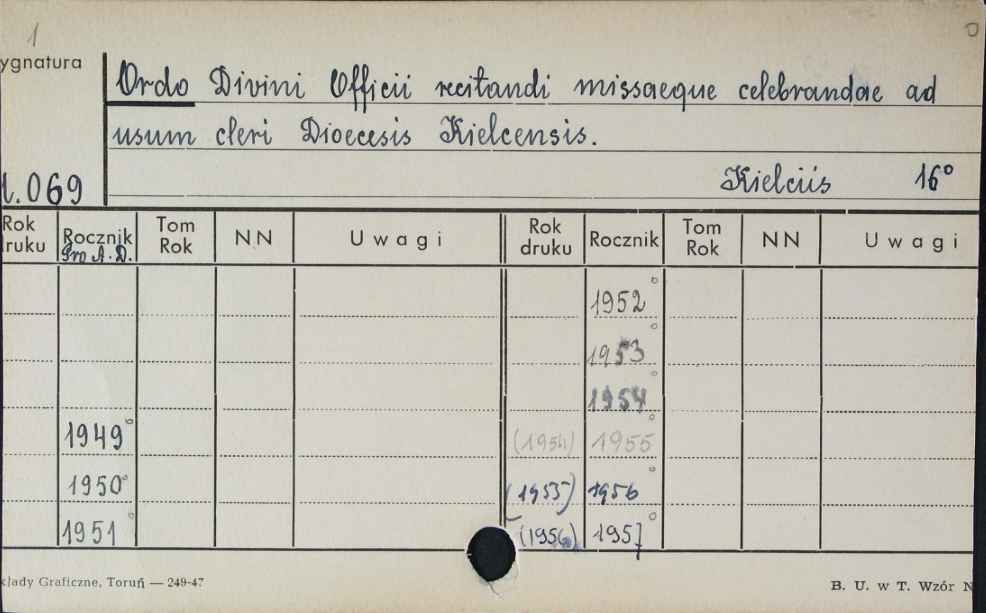 1
ygnatura
Ordo Divini Officii recitandi missaeque celebrandae ad
usum cleri Dioecesis Kielcensis.
.069
Kielciis 16°
Rok druku Rocznik Pro A. D. Tom Rok NN Uwagi Rok druku Rocznik Tom Rok NN Uwagi
1952°
1953°
1954°
1949° (1954) 1955°
1950° (1955) 1956°
1951° (1956) 1957°
kłady Graficzne, Toruń — 249-47
B. U. w T. Wzór N